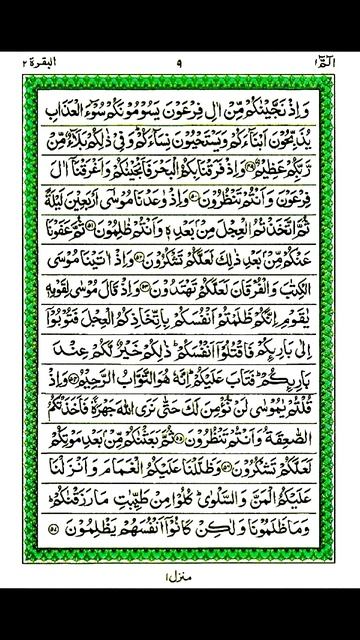 البقرة ٢ ٩ الٓمّٓ ١
وَاِذْ نَجَّيْنٰكُمْ مِّنْ اٰلِ فِرْعَوْنَ يَسُوْمُوْنَكُمْ سُوْٓءَ الْعَذَابِ
يُذَبِّحُوْنَ اَبْنَآءَكُمْ وَيَسْتَحْيُوْنَ نِسَآءَكُمْ وَفِيْ ذٰلِكُمْ بَلَآءٌ مِّنْ
رَّبِّكُمْ عَظِيْمٌ ٤٩ وَاِذْ فَرَقْنَا بِكُمُ الْبَحْرَ فَاَنْجَيْنٰكُمْ وَاَغْرَقْنَآ اٰلَ
فِرْعَوْنَ وَاَنْتُمْ تَنْظُرُوْنَ ٥٠ وَاِذْ وٰعَدْنَا مُوْسٰٓى اَرْبَعِيْنَ لَيْلَةً
ثُمَّ اتَّخَذْتُمُ الْعِجْلَ مِنْۢ بَعْدِهٖ وَاَنْتُمْ ظٰلِمُوْنَ ٥١ ثُمَّ عَفَوْنَا
عَنْكُمْ مِّنْۢ بَعْدِ ذٰلِكَ لَعَلَّكُمْ تَشْكُرُوْنَ ٥٢ وَاِذْ اٰتَيْنَا مُوْسَى
الْكِتٰبَ وَالْفُرْقَانَ لَعَلَّكُمْ تَهْتَدُوْنَ ٥٣ وَاِذْ قَالَ مُوْسٰى لِقَوْمِهٖ
يٰقَوْمِ اِنَّكُمْ ظَلَمْتُمْ اَنْفُسَكُمْ بِاتِّخَاذِكُمُ الْعِجْلَ فَتُوْبُوْٓا
اِلٰى بَارِئِكُمْ فَاقْتُلُوْٓا اَنْفُسَكُمْ ؕ ذٰلِكُمْ خَيْرٌ لَّكُمْ عِنْدَ
بَارِئِكُمْ ؕ فَتَابَ عَلَيْكُمْ ؕ اِنَّهٗ هُوَ التَّوَّابُ الرَّحِيْمُ ٥٤ وَاِذْ
قُلْتُمْ يٰمُوْسٰى لَنْ نُّؤْمِنَ لَكَ حَتّٰى نَرَى اللّٰهَ جَهْرَةً فَاَخَذَتْكُمُ
الصّٰعِقَةُ وَاَنْتُمْ تَنْظُرُوْنَ ٥٥ ثُمَّ بَعَثْنٰكُمْ مِّنْۢ بَعْدِ مَوْتِكُمْ
لَعَلَّكُمْ تَشْكُرُوْنَ ٥٦ وَظَلَّلْنَا عَلَيْكُمُ الْغَمَامَ وَاَنْزَلْنَا
عَلَيْكُمُ الْمَنَّ وَالسَّلْوٰى ؕ كُلُوْا مِنْ طَيِّبٰتِ مَا رَزَقْنٰكُمْ ؕ
وَمَا ظَلَمُوْنَا وَلٰكِنْ كَانُوْٓا اَنْفُسَهُمْ يَظْلِمُوْنَ ٥٧
منزل ١